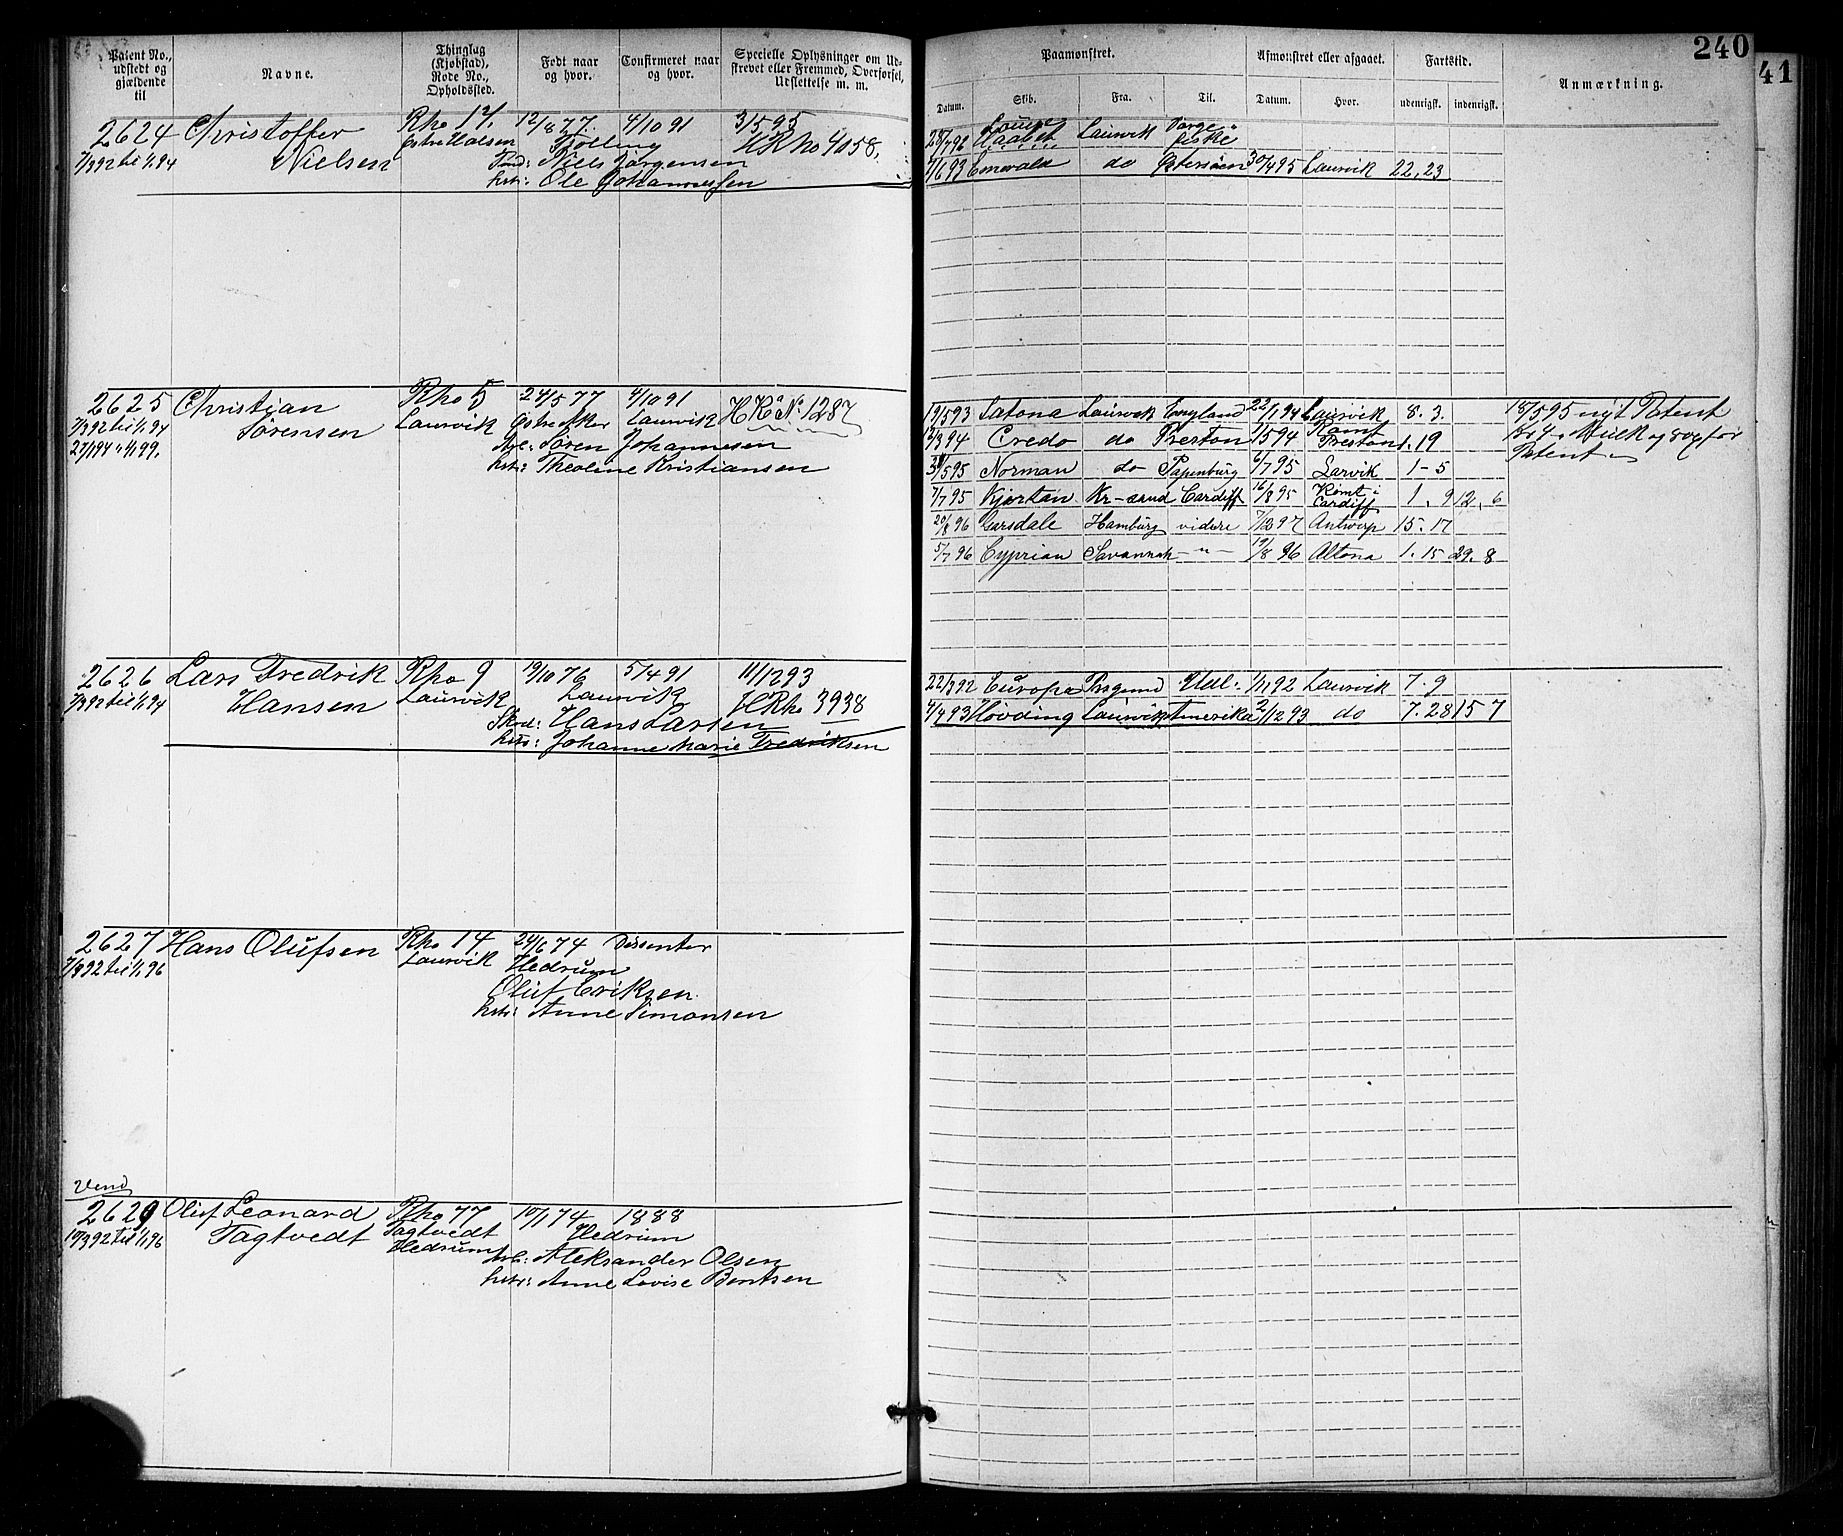 240
41
Patent No., udstedt og gjældende til
Navne.
Thinglag (Kjøbstad), Rode No., Opholdssted.
Født naar og hvor.
Confirmeret naar og hvor.
Specielle Oplysninger om Udskrevet eller Fremmed, Overførsel, Udslettelse m. m.
Paamønstret.
Afmønstret eller afgaaet.
Fartstid.
Anmærkning.
Datum. Skib. Fra. Til. Datum. Hvor. udenrigsk. indenrigsk.
2624 Christoffer Rno 121. 12/8 77. 4/10 91 3/5 95
7/3 92 til 1/1 94 Nielsen Østre Halsen Tjølling HRno 4058.
Niels Jørgensen
Ole Johannessen
Haabet Laurvik
7/6 93 Emerald do Østersøen 30/4 95 Laurvik 22,23
2625 Christian Rno 5 24/5 77 4/10 91 HR No. 1287
7/3 92 til 1/1 94 Sørensen Laurvik Laurvik
27/1 94 " 1/1 99.
Søren Johannesen
Theoline Kristiansen
19/5 93 Satona Laurvik England 22/1 94 Laurvik 8. 3. 18/5 95 nyt Patent
2/3 94 Credo do Preston 15 94 Rømt Preston 1. 19
Patent
30/5 95 Norman do Papenburg 6/7 95 Larvik 1-5
7/7 95 Kjartan Kr-sund Cardiff 16/8 95 Rømt i Cardiff 1. 9 12. 6
20/8 96 Garsdale Hamburg videre 7/12 97 Antwerp 15. 17
5/7 96 Cyprian Savannah - " - 19/8 96 Altona 1. 15 29. 8
2626 Lars Fredrik Rno 9 19/10 76 5/4 91 11/12 93
7/3 92 til 1/1 94 Hansen Laurvik Laurvik HRno 3938
Hans Larsen
Johanne Marie Fredriksen
22/3 92 Europa Prsgrund Udl. 1/11 92 Laurvik 7. 9
4/4 93 Høvding Laurvik Amerika 2/12 93 do 7. 28 15 7
2627 Hans Olufsen Rno 14 24/6 74 Dissenter
7/3 92 til 1/1 96 Laurvik Hedrum
Oluf Eriksen
Anne Simonsen
Vend
2629 Oluf Leonard Rno 77 10/1 74 1888
10/3 92 til 1/1 96 Tagtvedt Tagtvedt Hedrum
Hedrum
Aleksander Olsen
Anne Lovise Bentsen